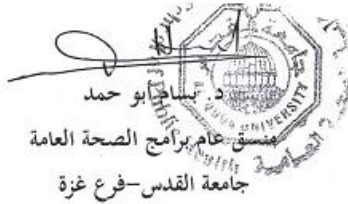 د. بسام أبو حمد
منسق عام برامج الصحة العامة
جامعة القدس–فرع غزة
UNIVERSITY